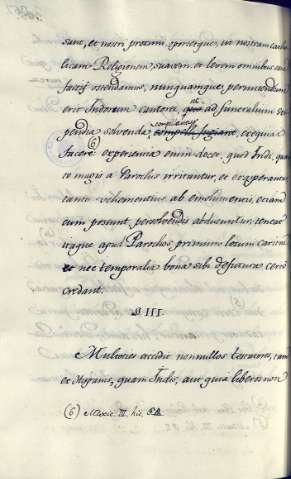 sunt, et nostri proximi, oportetque, ut nostram catho-
licam Religionem, suavem, et levem omnibus eva-
ostendamus, nunquamque, permittendum
erit Indorum cautores, ut ad funeralium dis-
pendia solvenda compellantur exequias
facere (6) experientia enim docet, quod Indi, quan-
to magis a Parochis irritantur, et exasperantur
tanto vehementius ab emolumentis, etiam
cum possunt, persolvendis abducuntur, teneat
itaque apud Parochos, primum locum caritas
et nec temporalia bona sibi defutura certo
credant.
§ III.
Multoties accidit nonnullos testatores, tam
ex Hispanis, quam Indis, aut quia liberos non
(6) Mexic. III. hic.